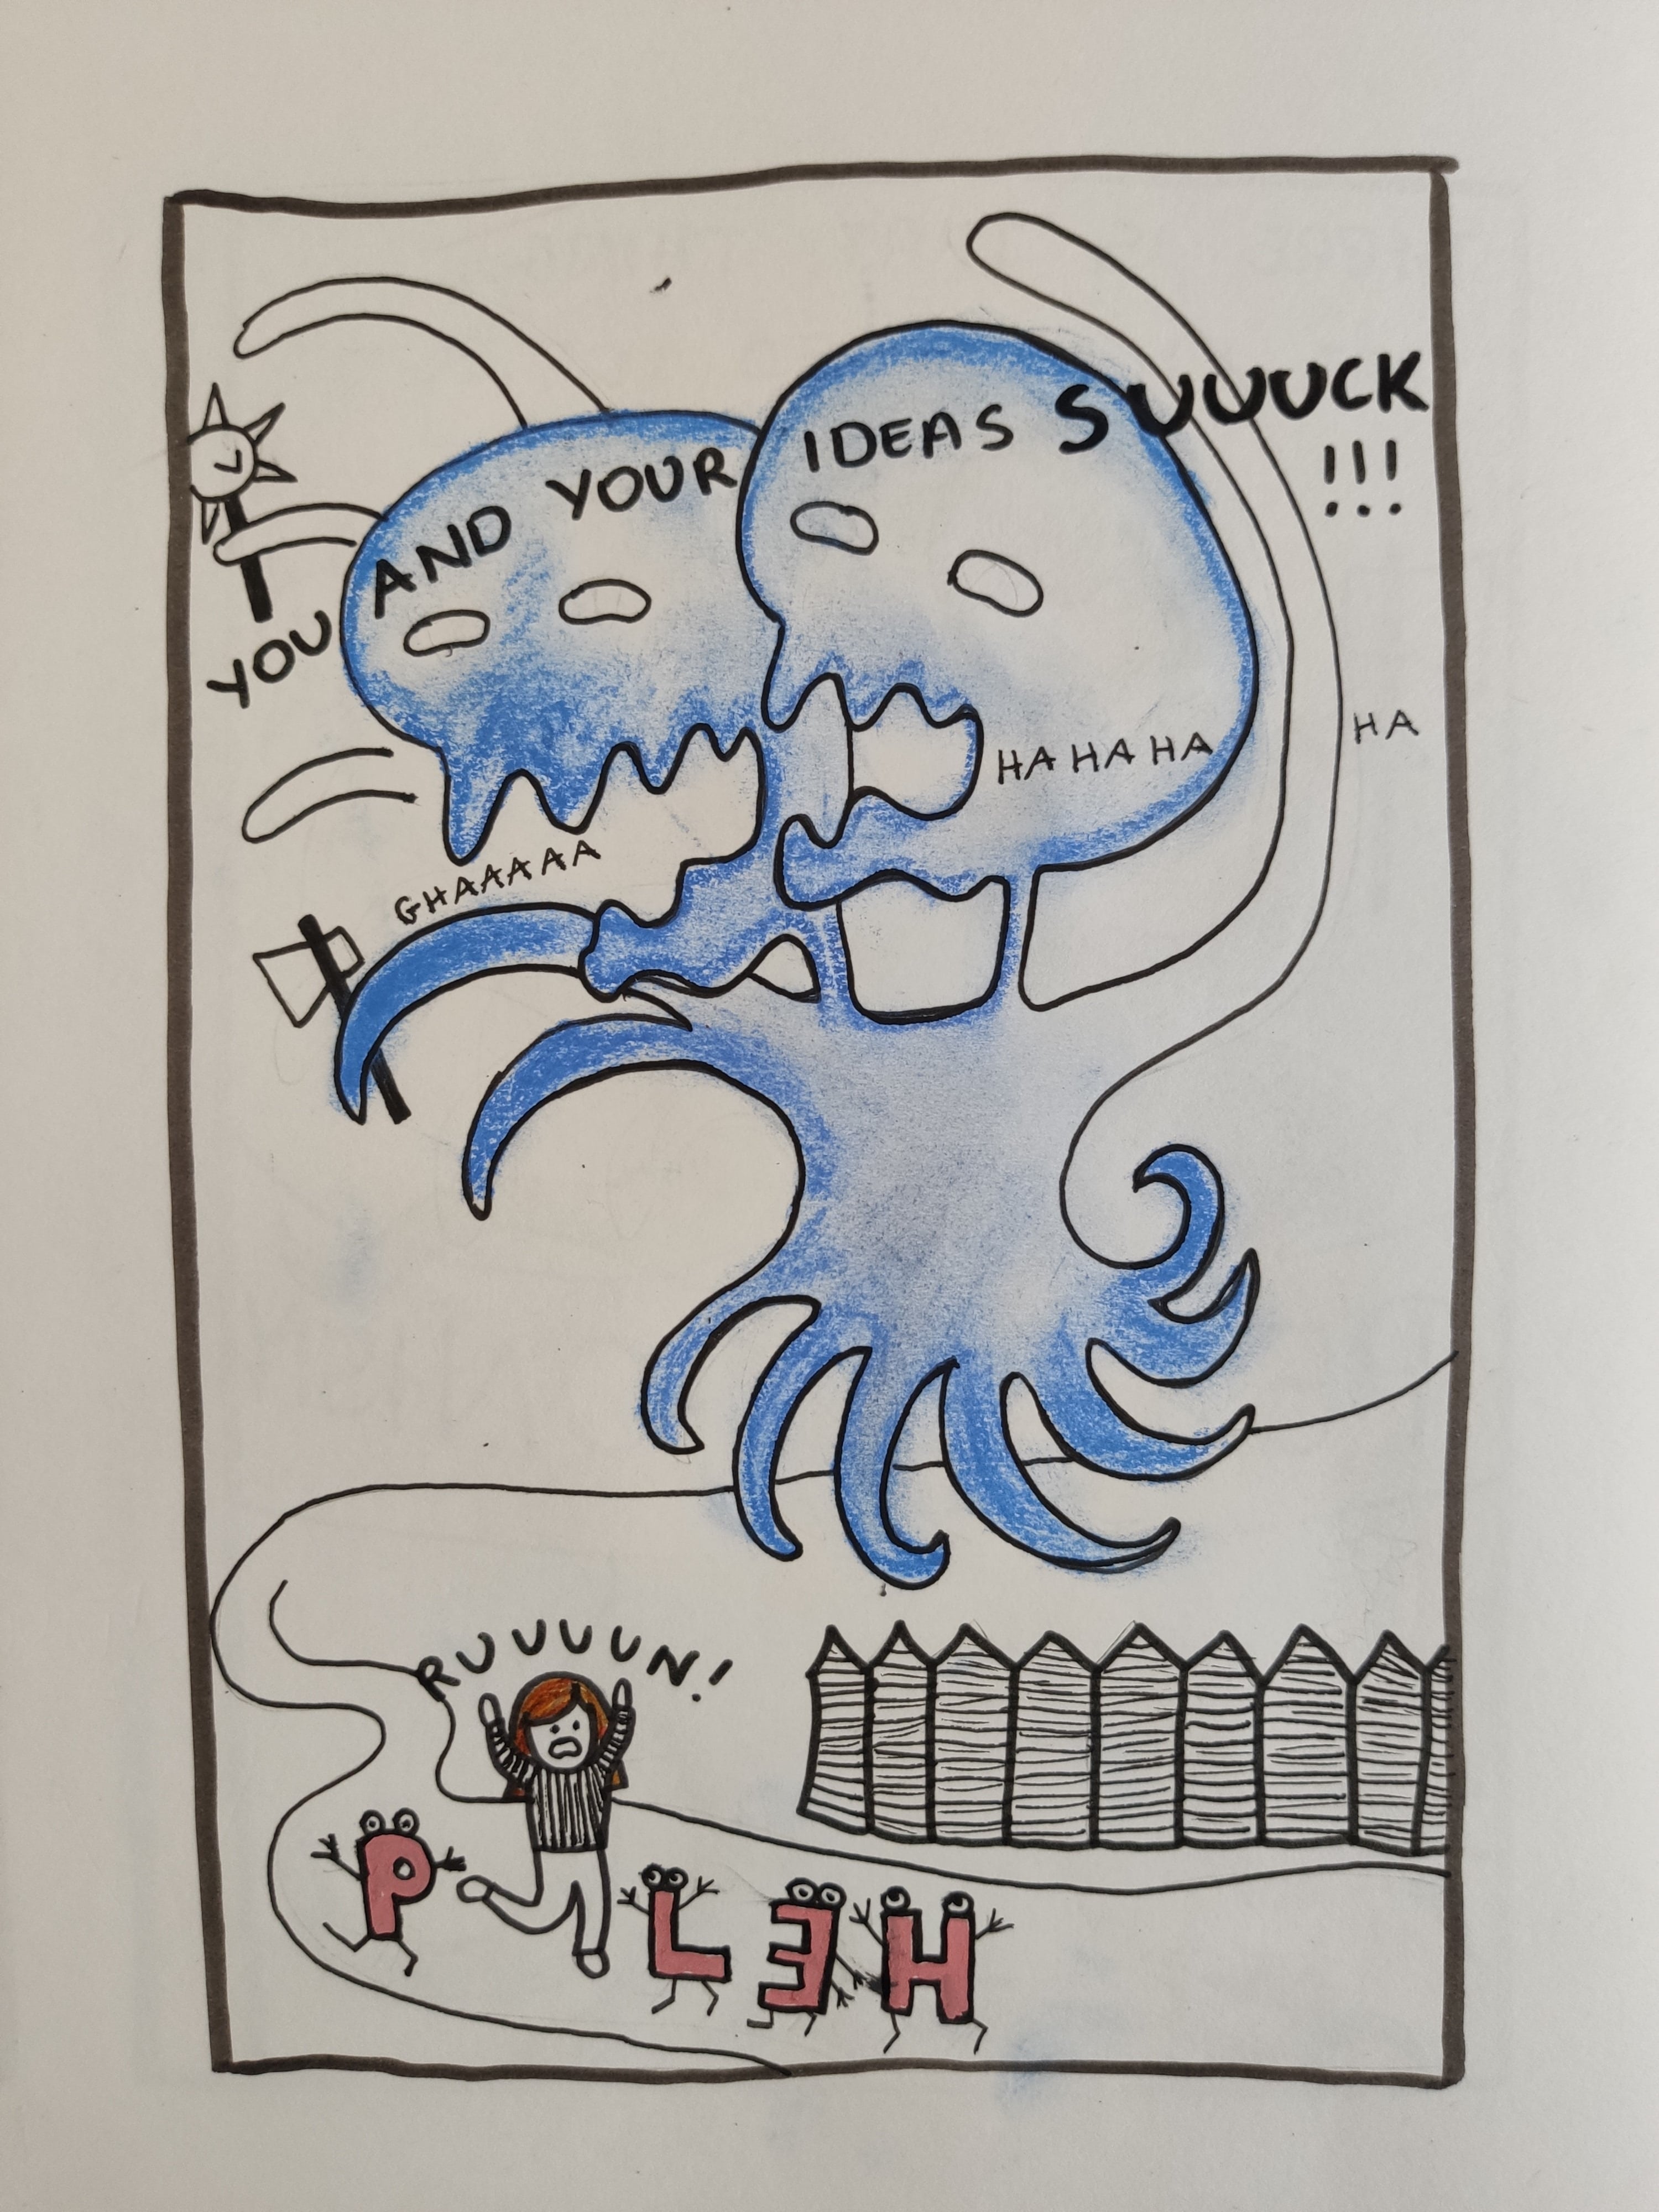 YOU AND YOUR IDEAS SUUUCK
!!!
HA HA HA HA
GHAAAAA
RUUUUN!
P L E H